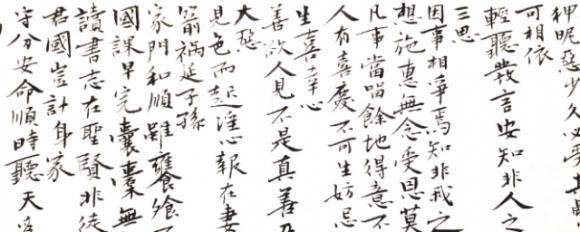 狎昵惡少久必受其
可相依
輕聽發言安知非人之
三思
因事相爭焉知非我之
想施惠無念受恩莫
凡事當留餘地得意不
人有喜慶不可生妒忌
生喜幸心
善欲人見不是真善
大惡
見色而起淫心報在妻
箭禍延子孫
家門和順雖饔飧不
國課早完囊橐無
讀書志在聖賢非徒
君國豈計身家
守分安命順時聽天